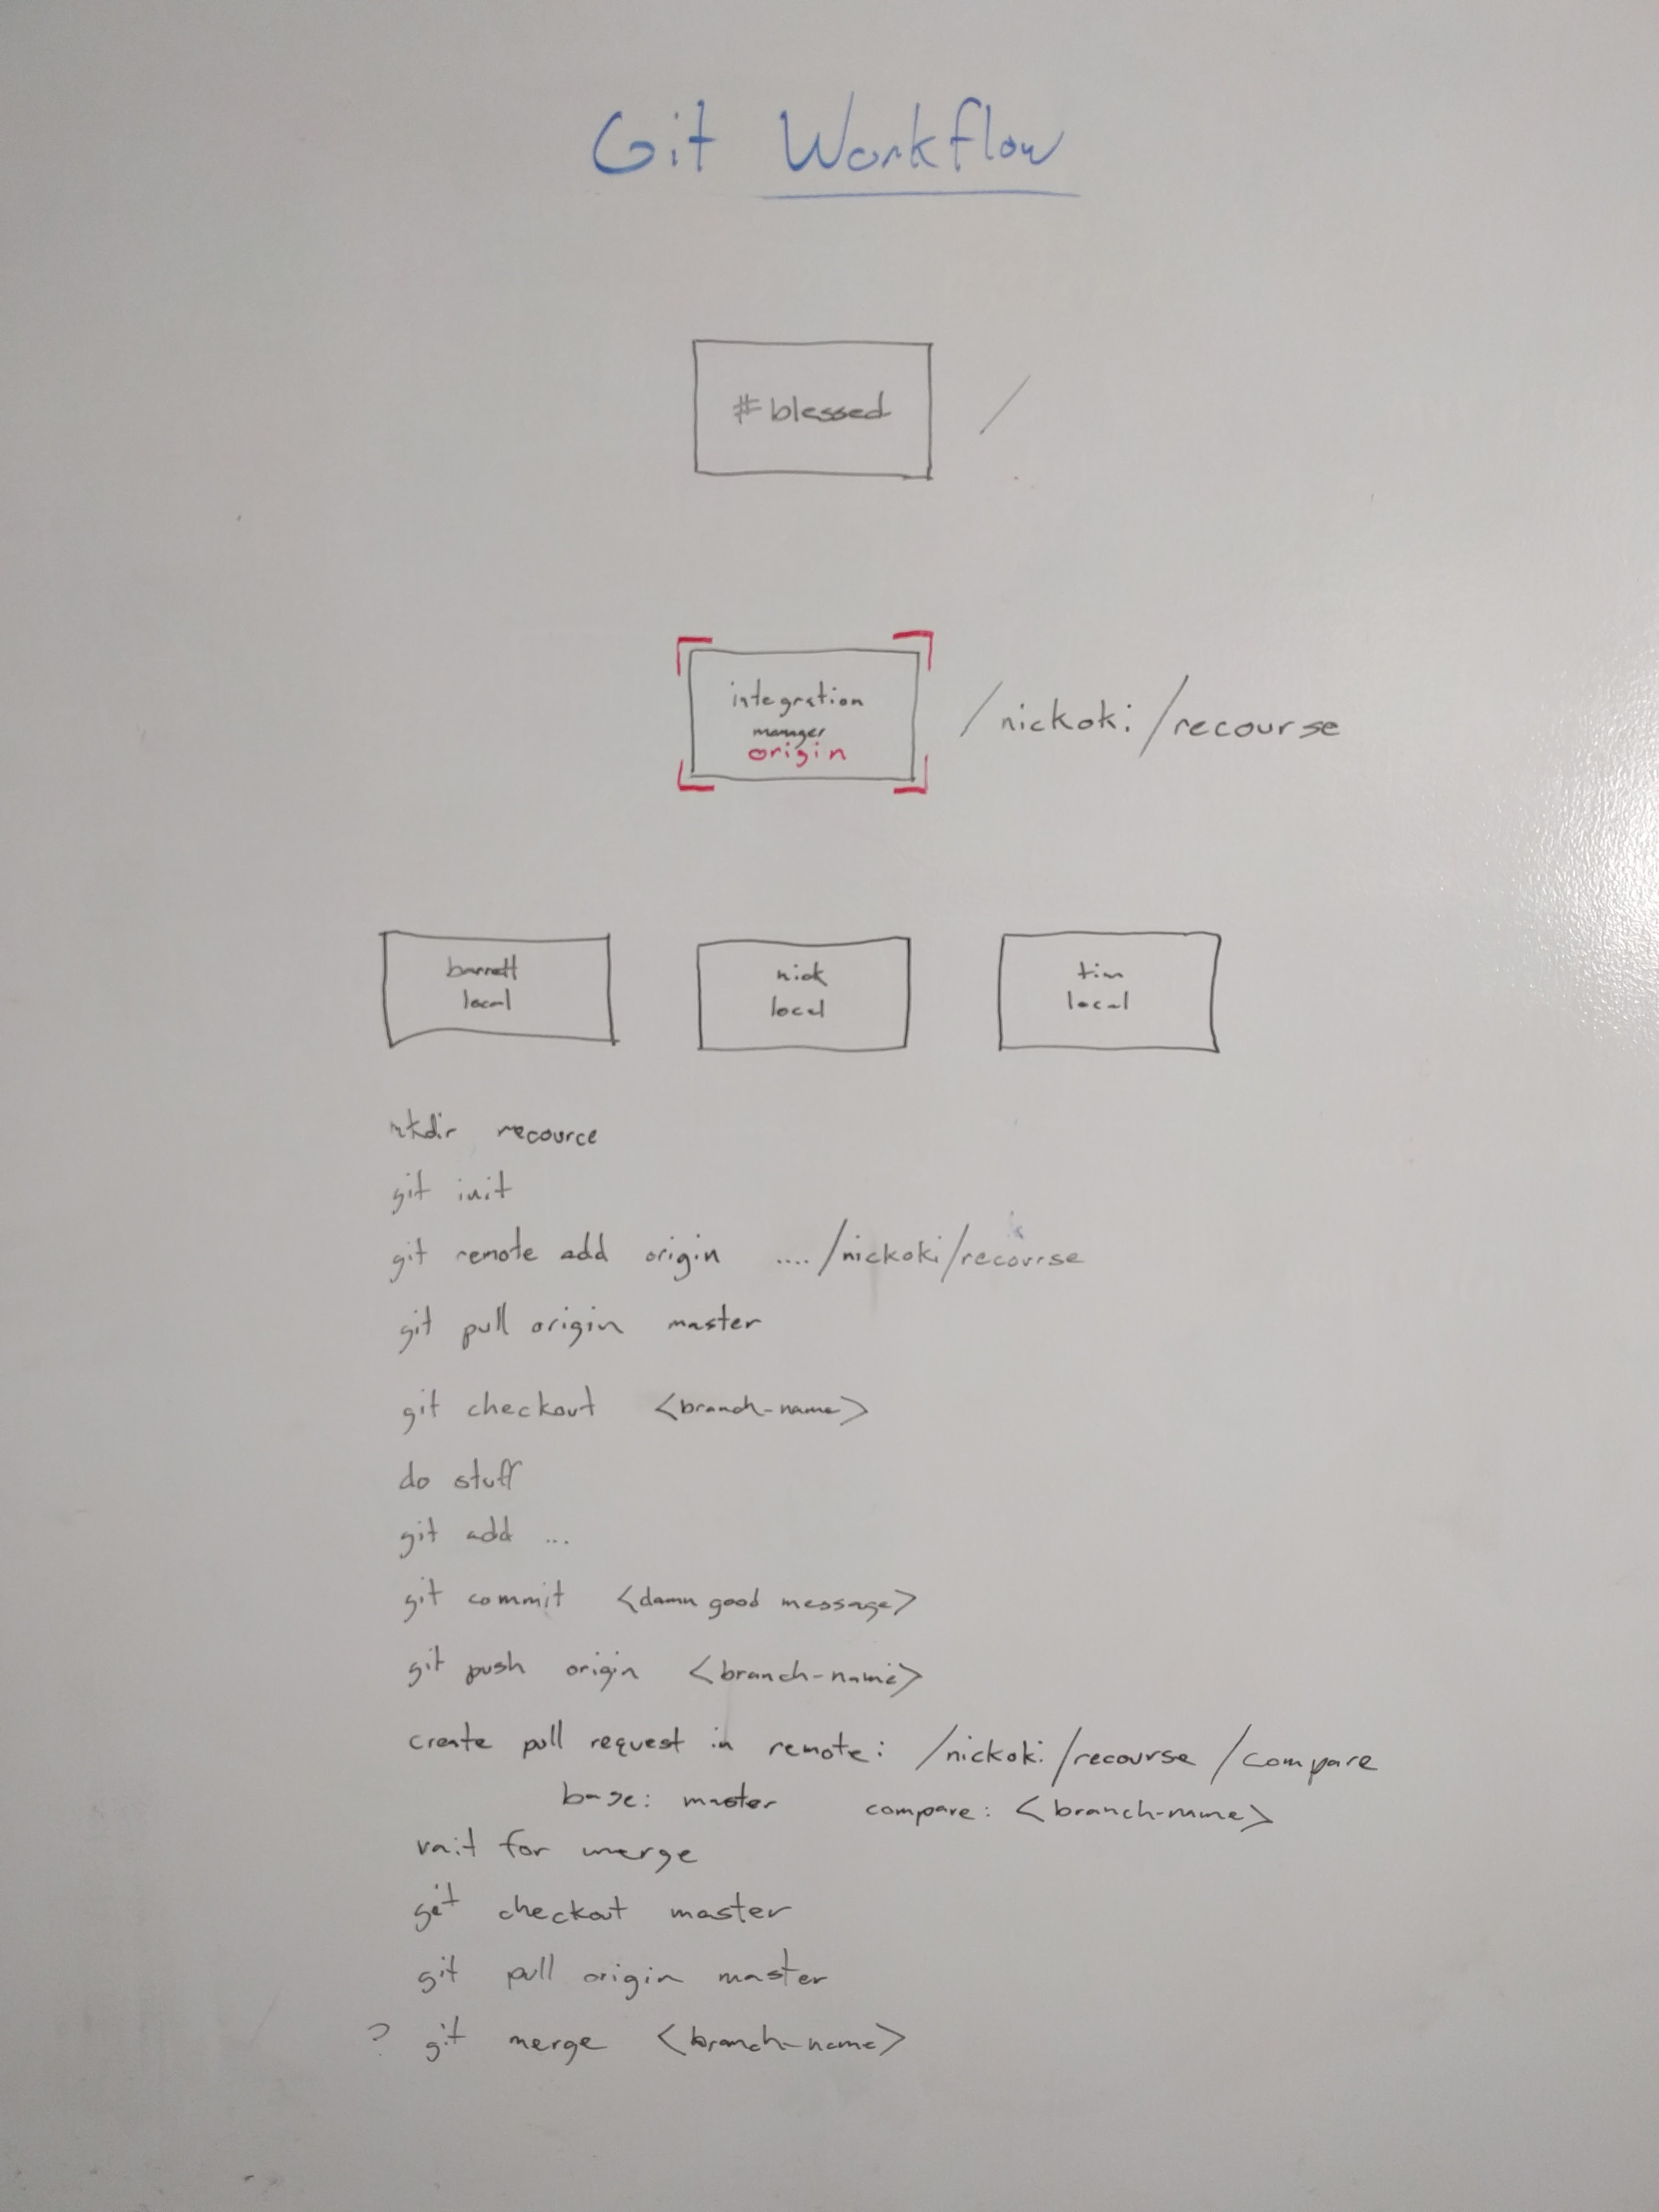 Git Workflow
#blessed /
integration
manager
origin
/nickoki/recourse
barrett
local
nick
local
tim
local
mkdir recource
git init
git remote add origin ..../nickoki/recourse
git pull origin master
git checkout <branch-name>
do stuff
git add ...
git commit <damn good message>
git push origin <branch-name>
create pull request in remote: /nickoki/recourse/compare
base: master compare: <branch-name>
wait for merge
git checkout master
git pull origin master
? git merge <branch-name>